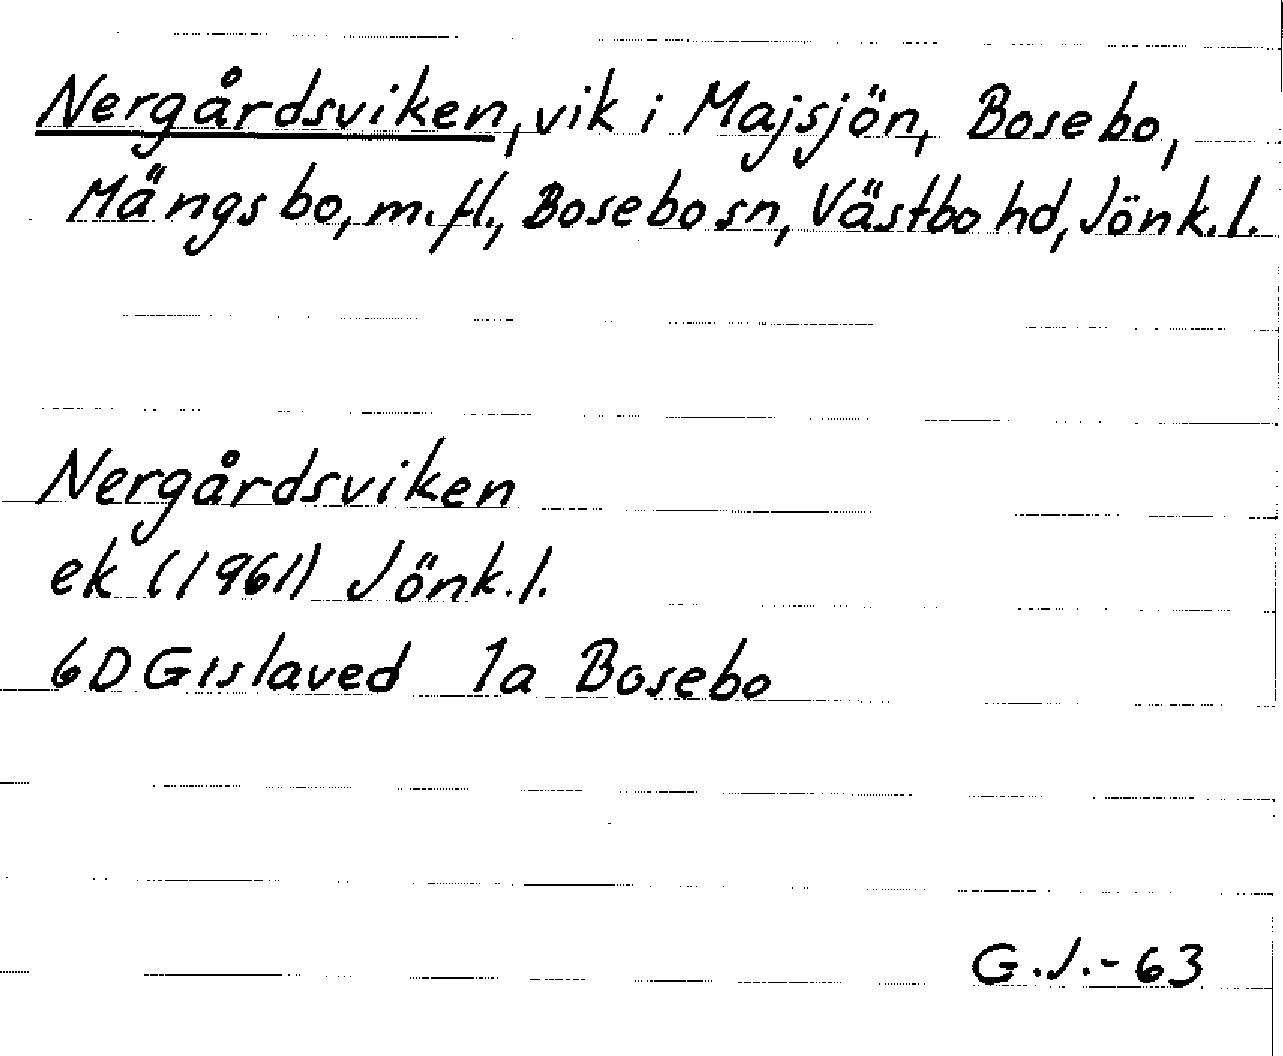 Nergårdsviken, vik i Majsjön, Bosebo,
Mängsbo, m.fl., Bosebo sn, Västbo hd, Jönk.l.
Nergårdsviken
ek (1961) Jönk.l.
6D Gislaved 1a Bosebo
G.J.-63